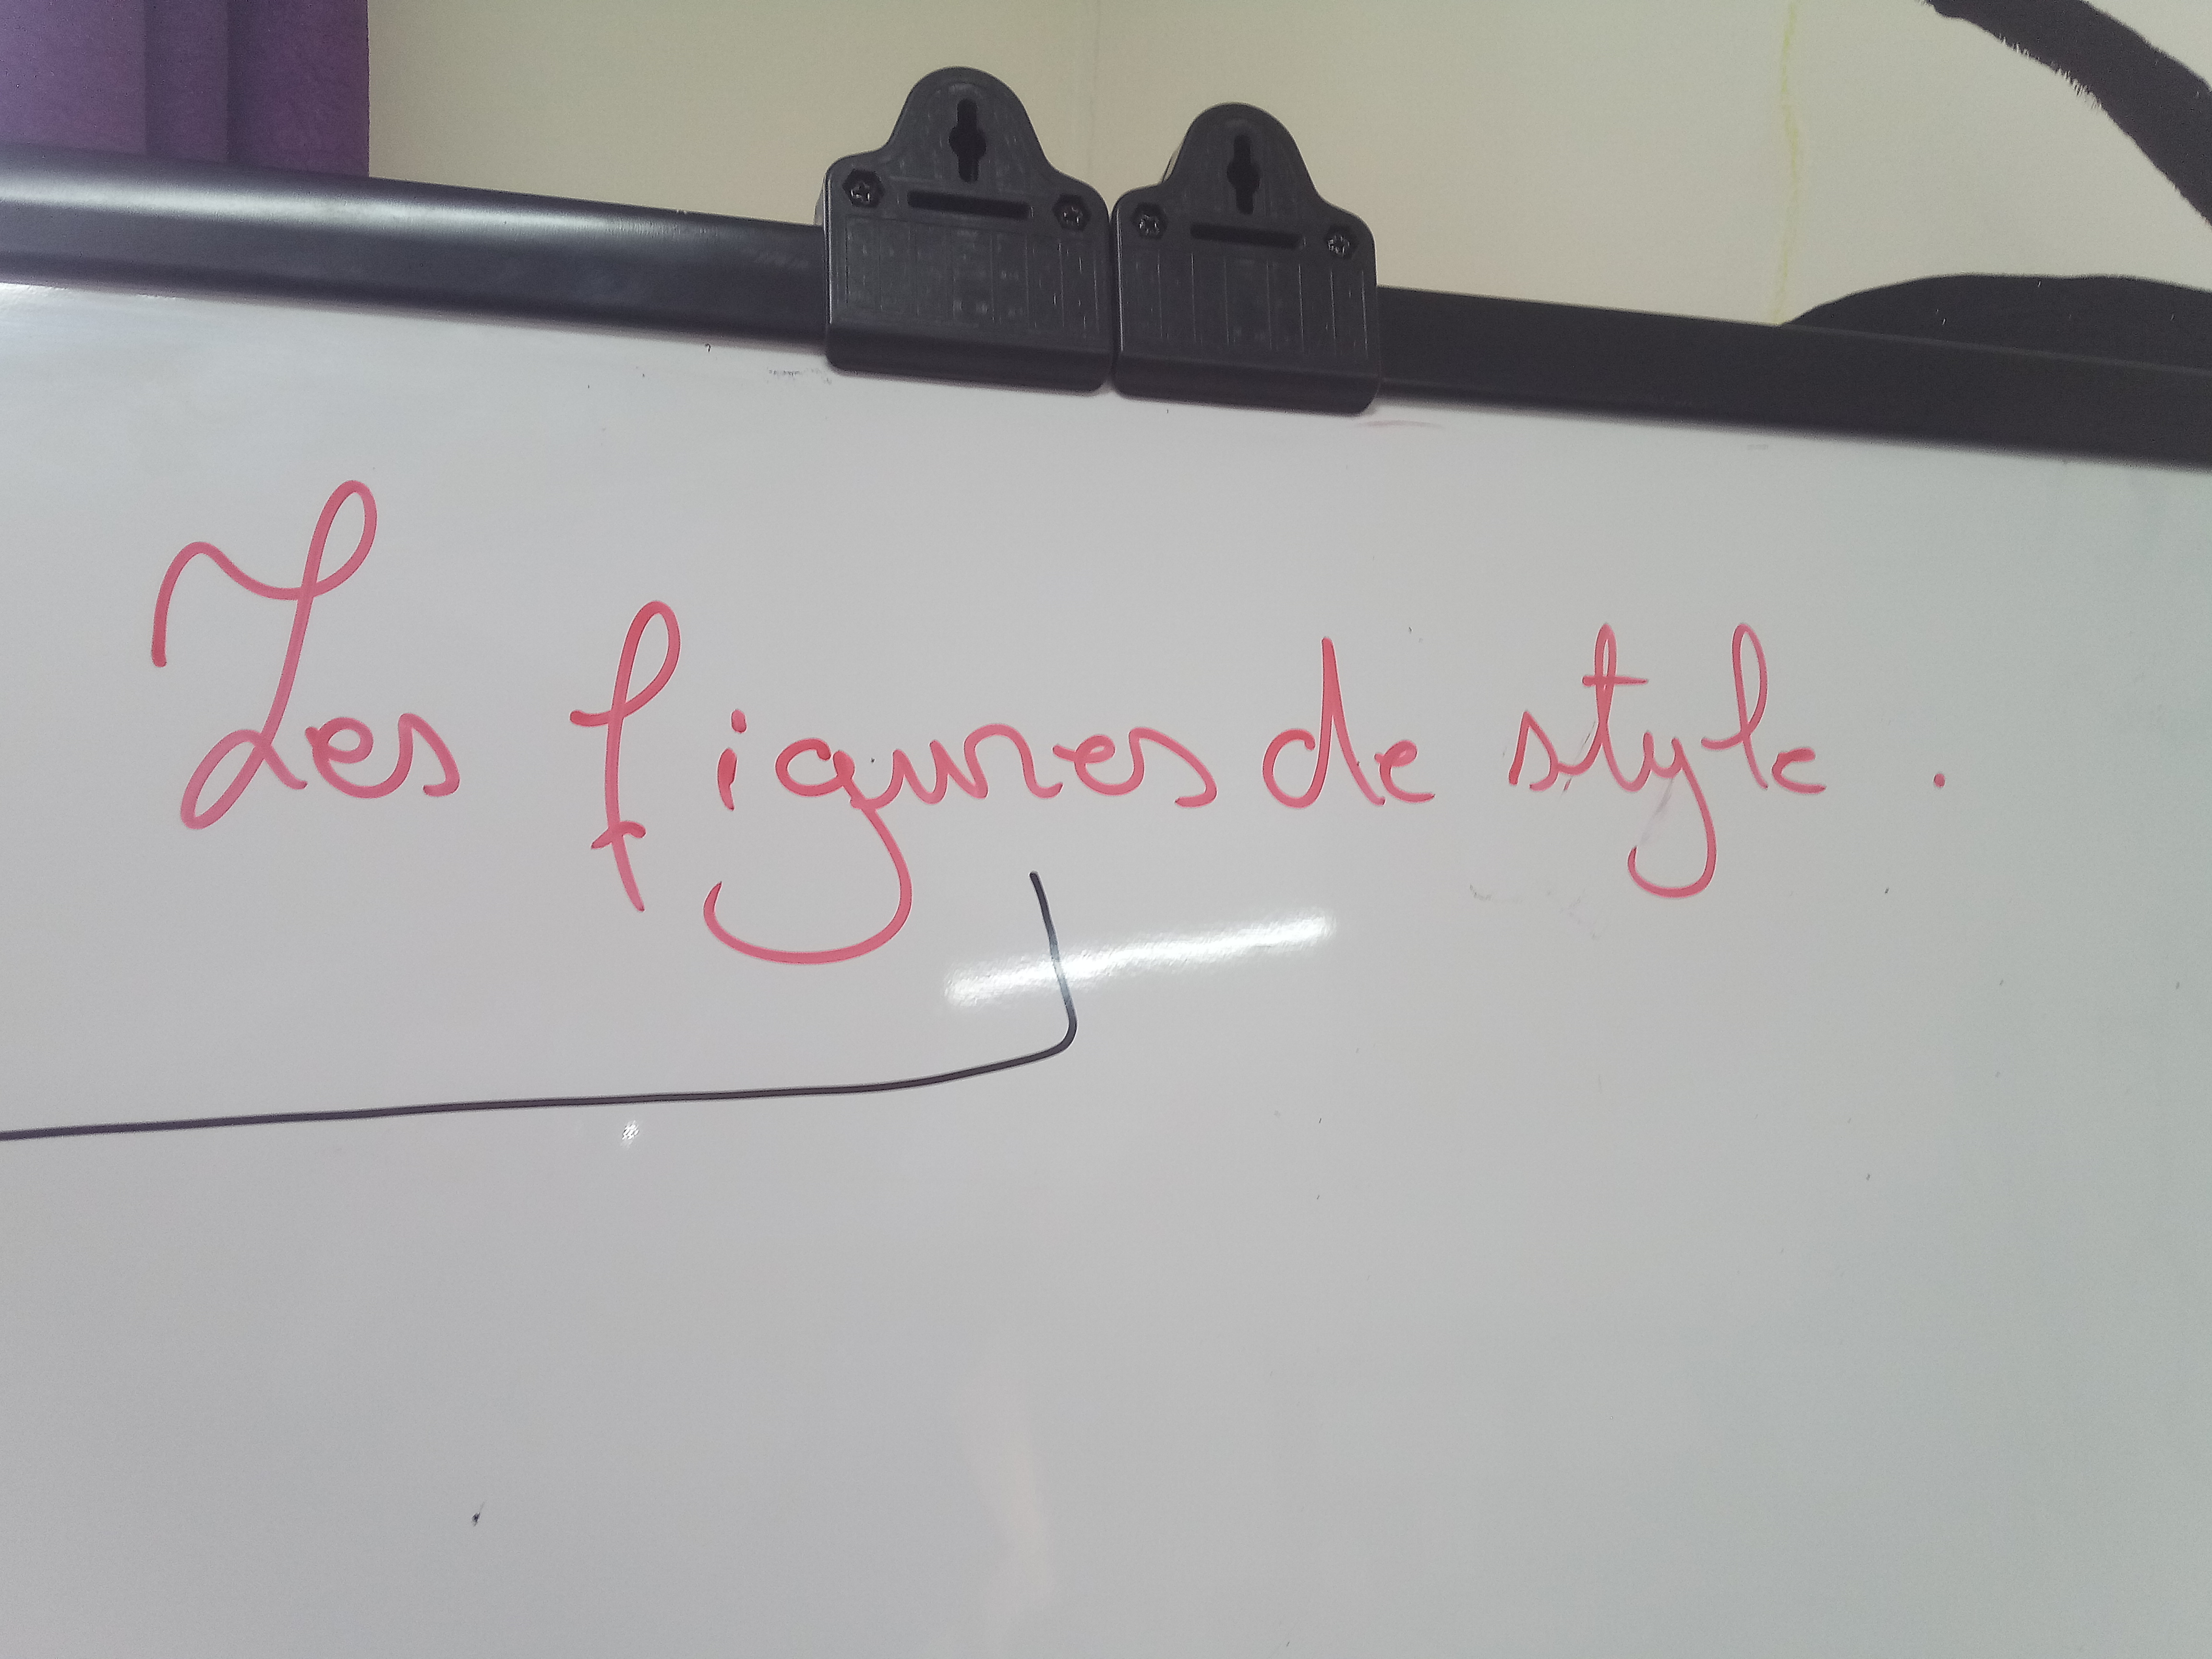 Les figures de style.